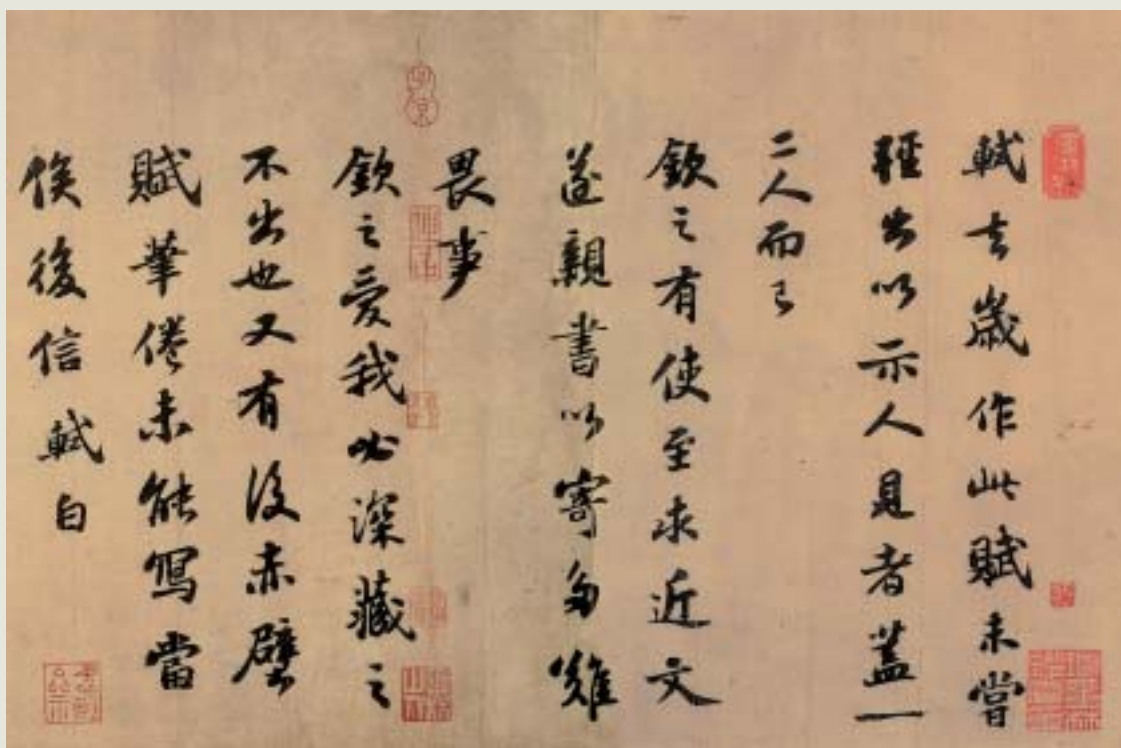 軾去歲作此賦未嘗
輕出以示人見者蓋一
二人而已
欽之有使至求近文
遂親書以寄多難
畏事
欽之愛我必深藏之
不出也又有後赤壁
賦筆倦未能寫當
俟後信軾白